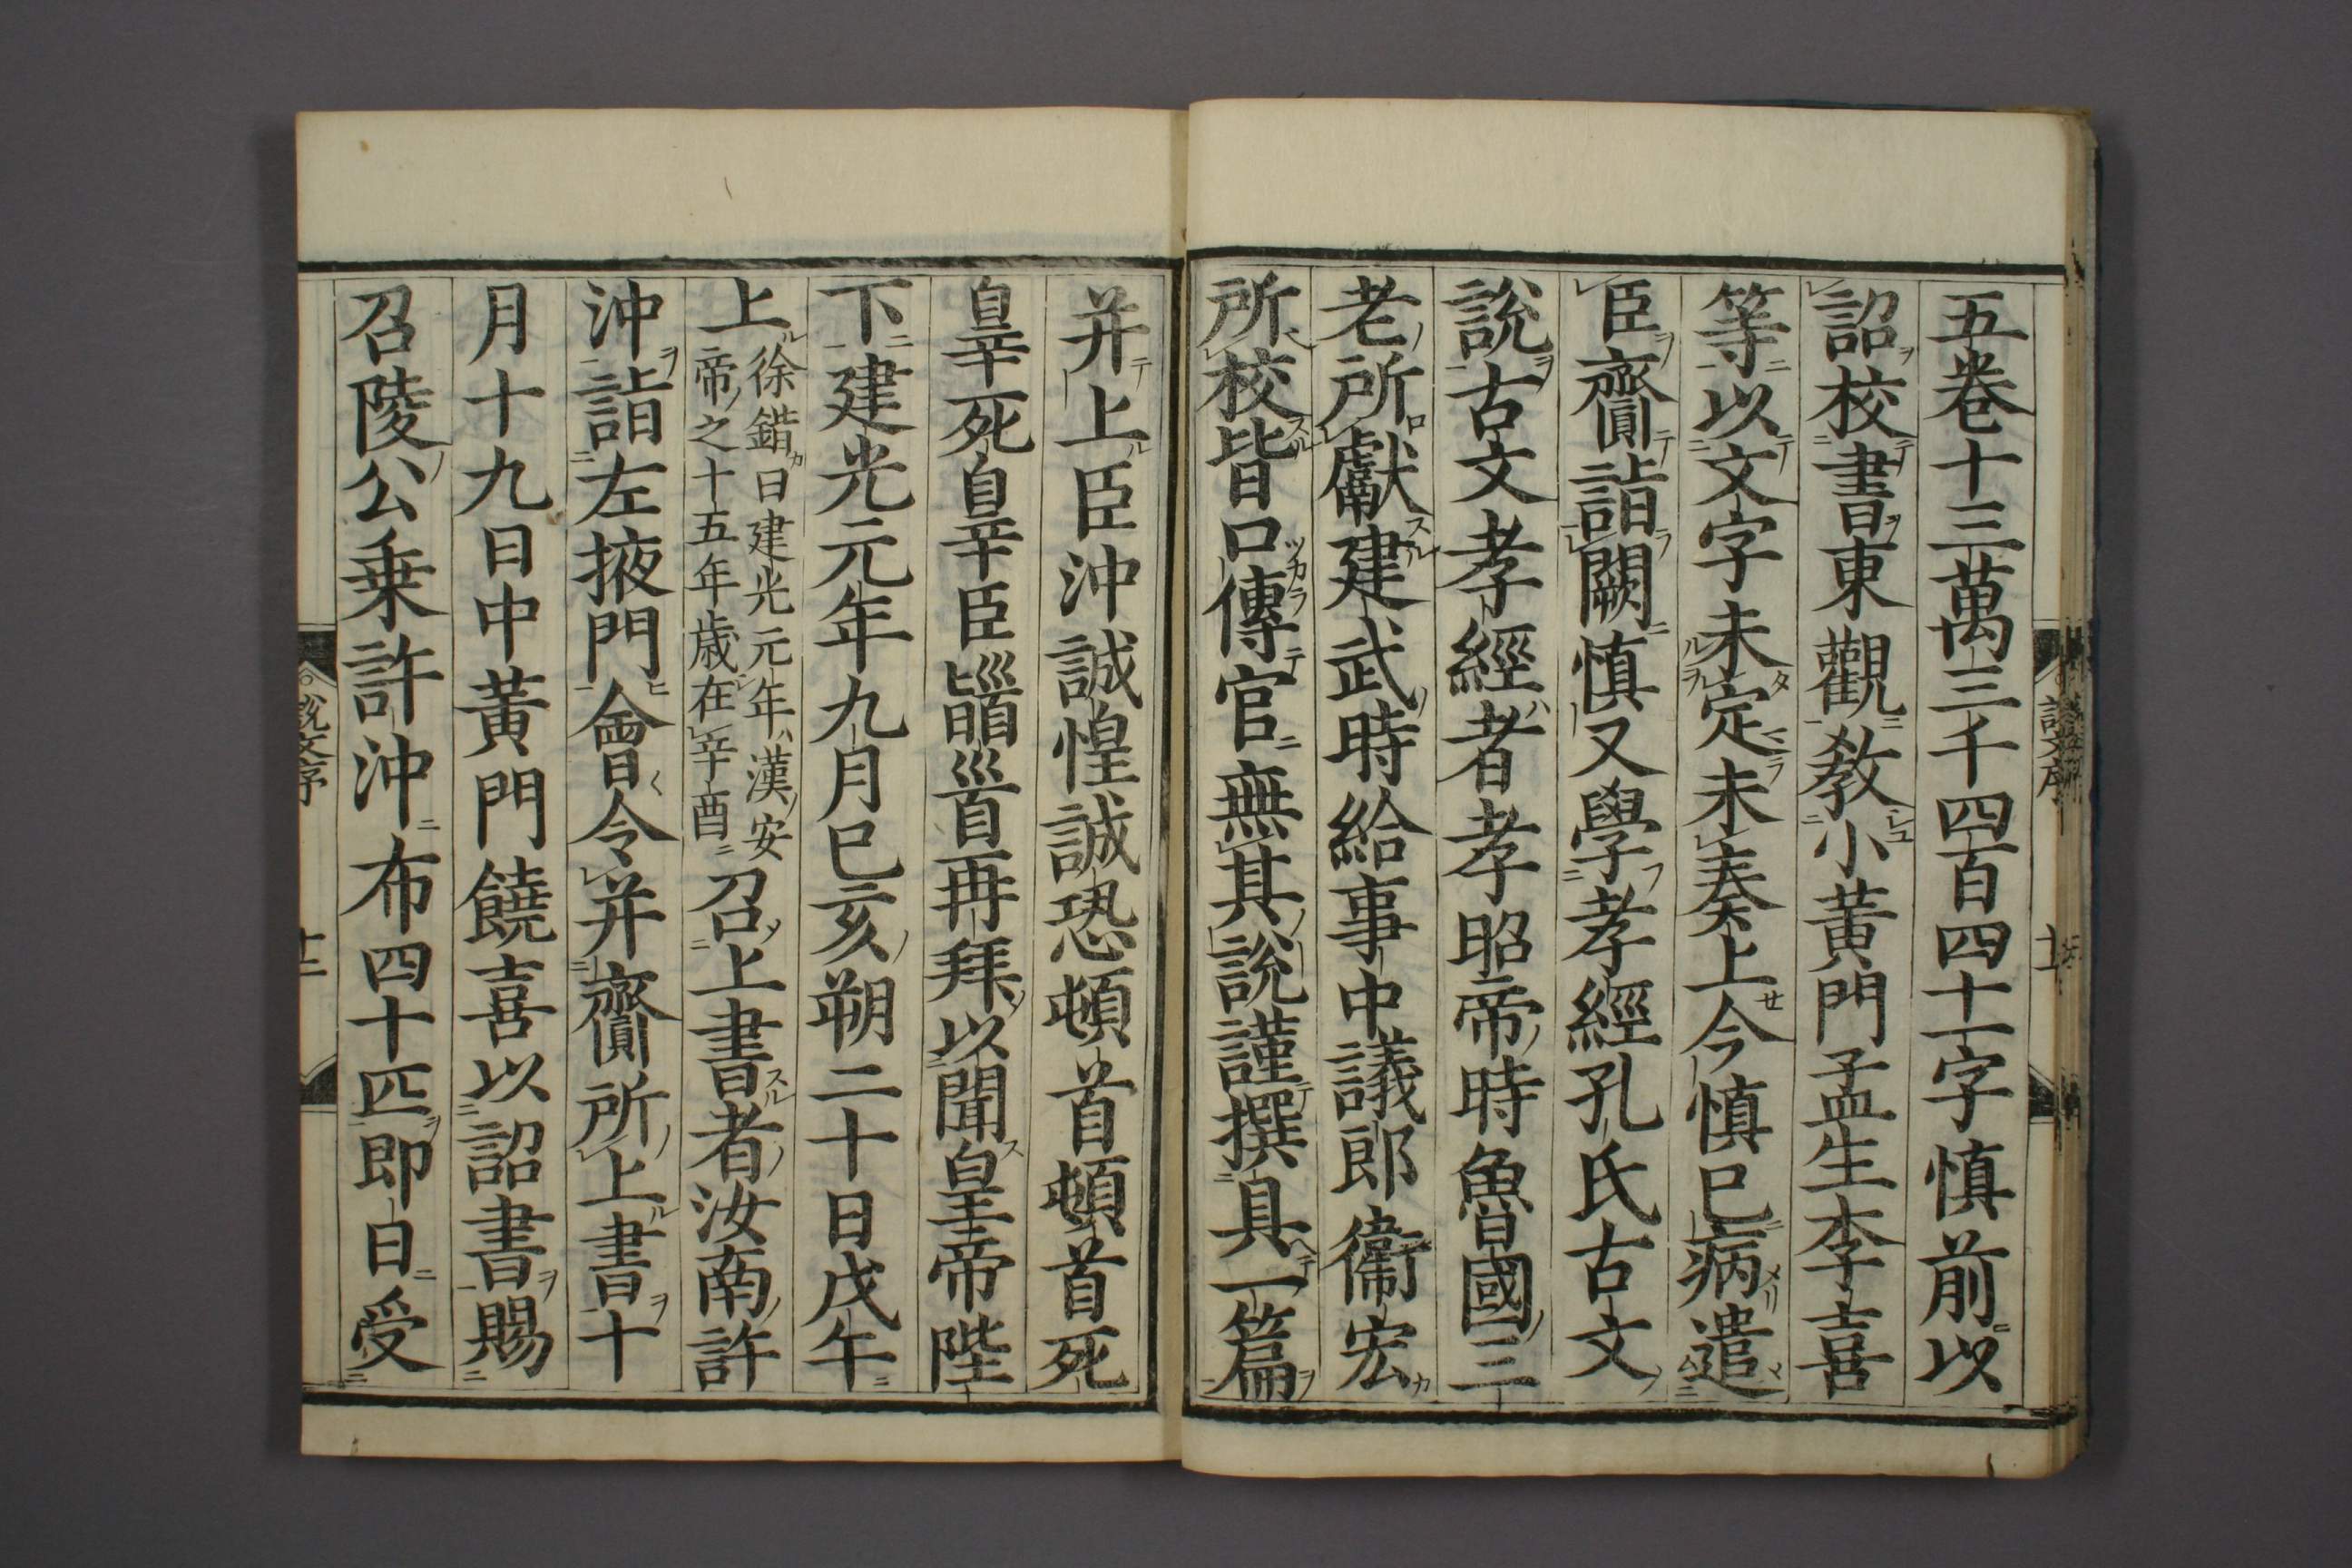 五卷十三萬三千四百四十一字慎前以
詔校書東觀教小黃門孟生李喜
等以文字未定未奏上今慎已病遣
臣齎詣闕慎又學孝經孔氏古文
說古文孝經者孝昭帝時魯國三
老所獻建武時給事中議郎衞宏
所校皆口傳官無其說謹撰具一篇
并上臣沖誠惶誠恐頓首頓首死
辠死辠臣䭫首再拜以聞皇帝陛
下建光元年九月已亥朔二十日戊午
上徐鍇曰建光元年漢安
帝之十五年歲在辛酉召上書者汝南許
沖詣左掖門會令并齎所上書十
月十九日中黃門饒喜以詔書賜
召陵公乗許沖布四十匹即日受
說文序
十一
說文序
十二